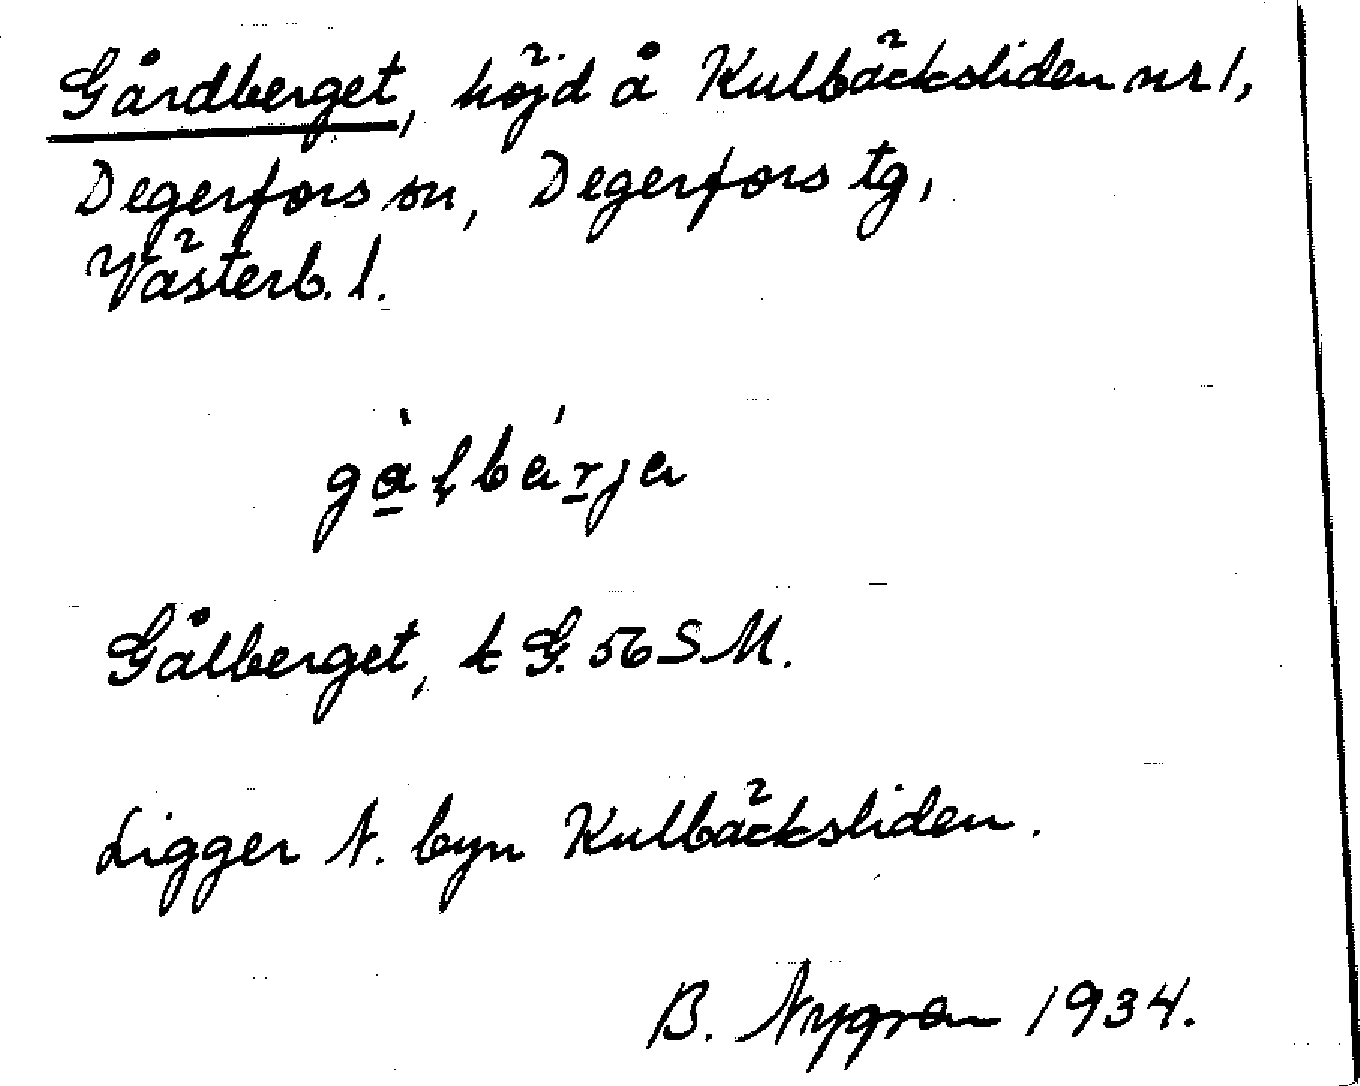 Gårdberget, höjd å Kulbäcksliden nr 1,
Degerfors sn, Degerfors tg,
Västerb. l.
Gålberget, k G. 56 S M.
Ligger N. byn Kulbäcksliden.
B. Nygren 1934.